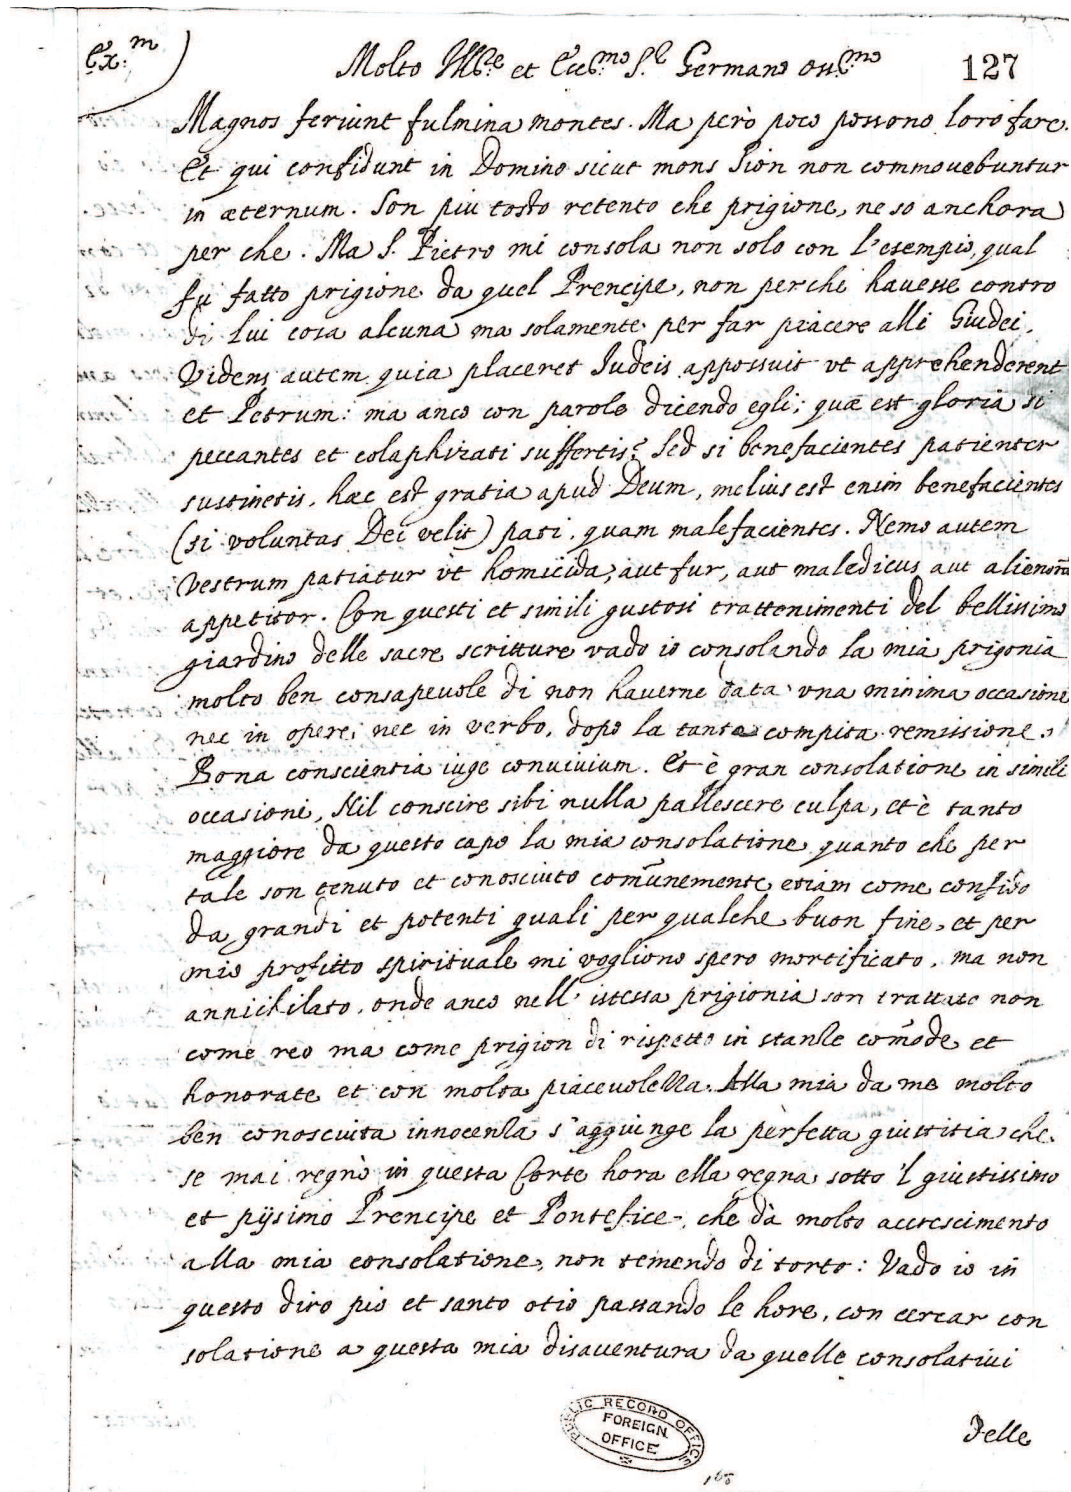 Ex:m
Molto Ill:re et Ecc:mo S.r Germano oss:mo 127
Magnos feriunt fulmina montes. Ma però poco possono loro fare.
Et qui confidunt in Domino sicut mons Sion non commovebuntur
in æternum. Son piu tosto retento che prigione, ne so anchora
per che. Ma S. Pietro mi consola non solo con l'esempio, qual
fu fatto prigione da quel Prencipe, non perche havesse contro
di lui cosa alcuna ma solamente per far piacere alli Giudei.
Videns autem quia placeret Judeis appossuit vt apprehenderent
et Petrum: ma anco con parole dicendo egli; quæ est gloria si
peccantes et colaphizati suffertis? Sed si benefacientes patienter
sustinetis, hæc est gratia apud Deum, melius est enim benefacientes
(si voluntas Dei velit) pati, quam malefacientes. Nemo autem
vestrum patiatur vt homicida, aut fur, aut maledicus aut alienorũ
appetitor. Con questi et simili gustosi trattenimenti del bellissimo
giardino delle sacre scritture vado io consolando la mia prigonia
molto ben consapevole di non haverne data vna minima occasione
nec in opere, nec in verbo, dopo la tanta compita remissione.
Bona conscientia iuge convivium. Et è gran consolatione in simili
occasioni, Nil conscire sibi nulla pallescere culpa, et è tanto
maggiore da questo capo la mia consolatione quanto che per
tale son tenuto et conosciuto comũnemente etiam come confido
da grandi et potenti quali per qualche buon fine, et per
mio profitto spirituale mi vogliono spero mortificato, ma non
annichilato, onde anco nell' istessa prigionia son trattato non
come reo ma come prigion di rispetto in stanze com̃ode et
honorate et con molta piacevolezza. Alla mia da me molto
ben conosciuta innocenza s'aggiunge la perfetta giustitia che
se mai regnò in questa Corte hora ella regna sotto 'l giustissimo
et pijsimo Prencipe et Pontefice, che dà molto accrescimento
alla mia consolatione, non temendo di torto: Vado io in
questo dirò pio et santo otio passando le hore, con cercar con
solatione a questa mia disaventura da quelle consolativi
delle
PUBLIC RECORD OFFICE
FOREIGN
OFFICE